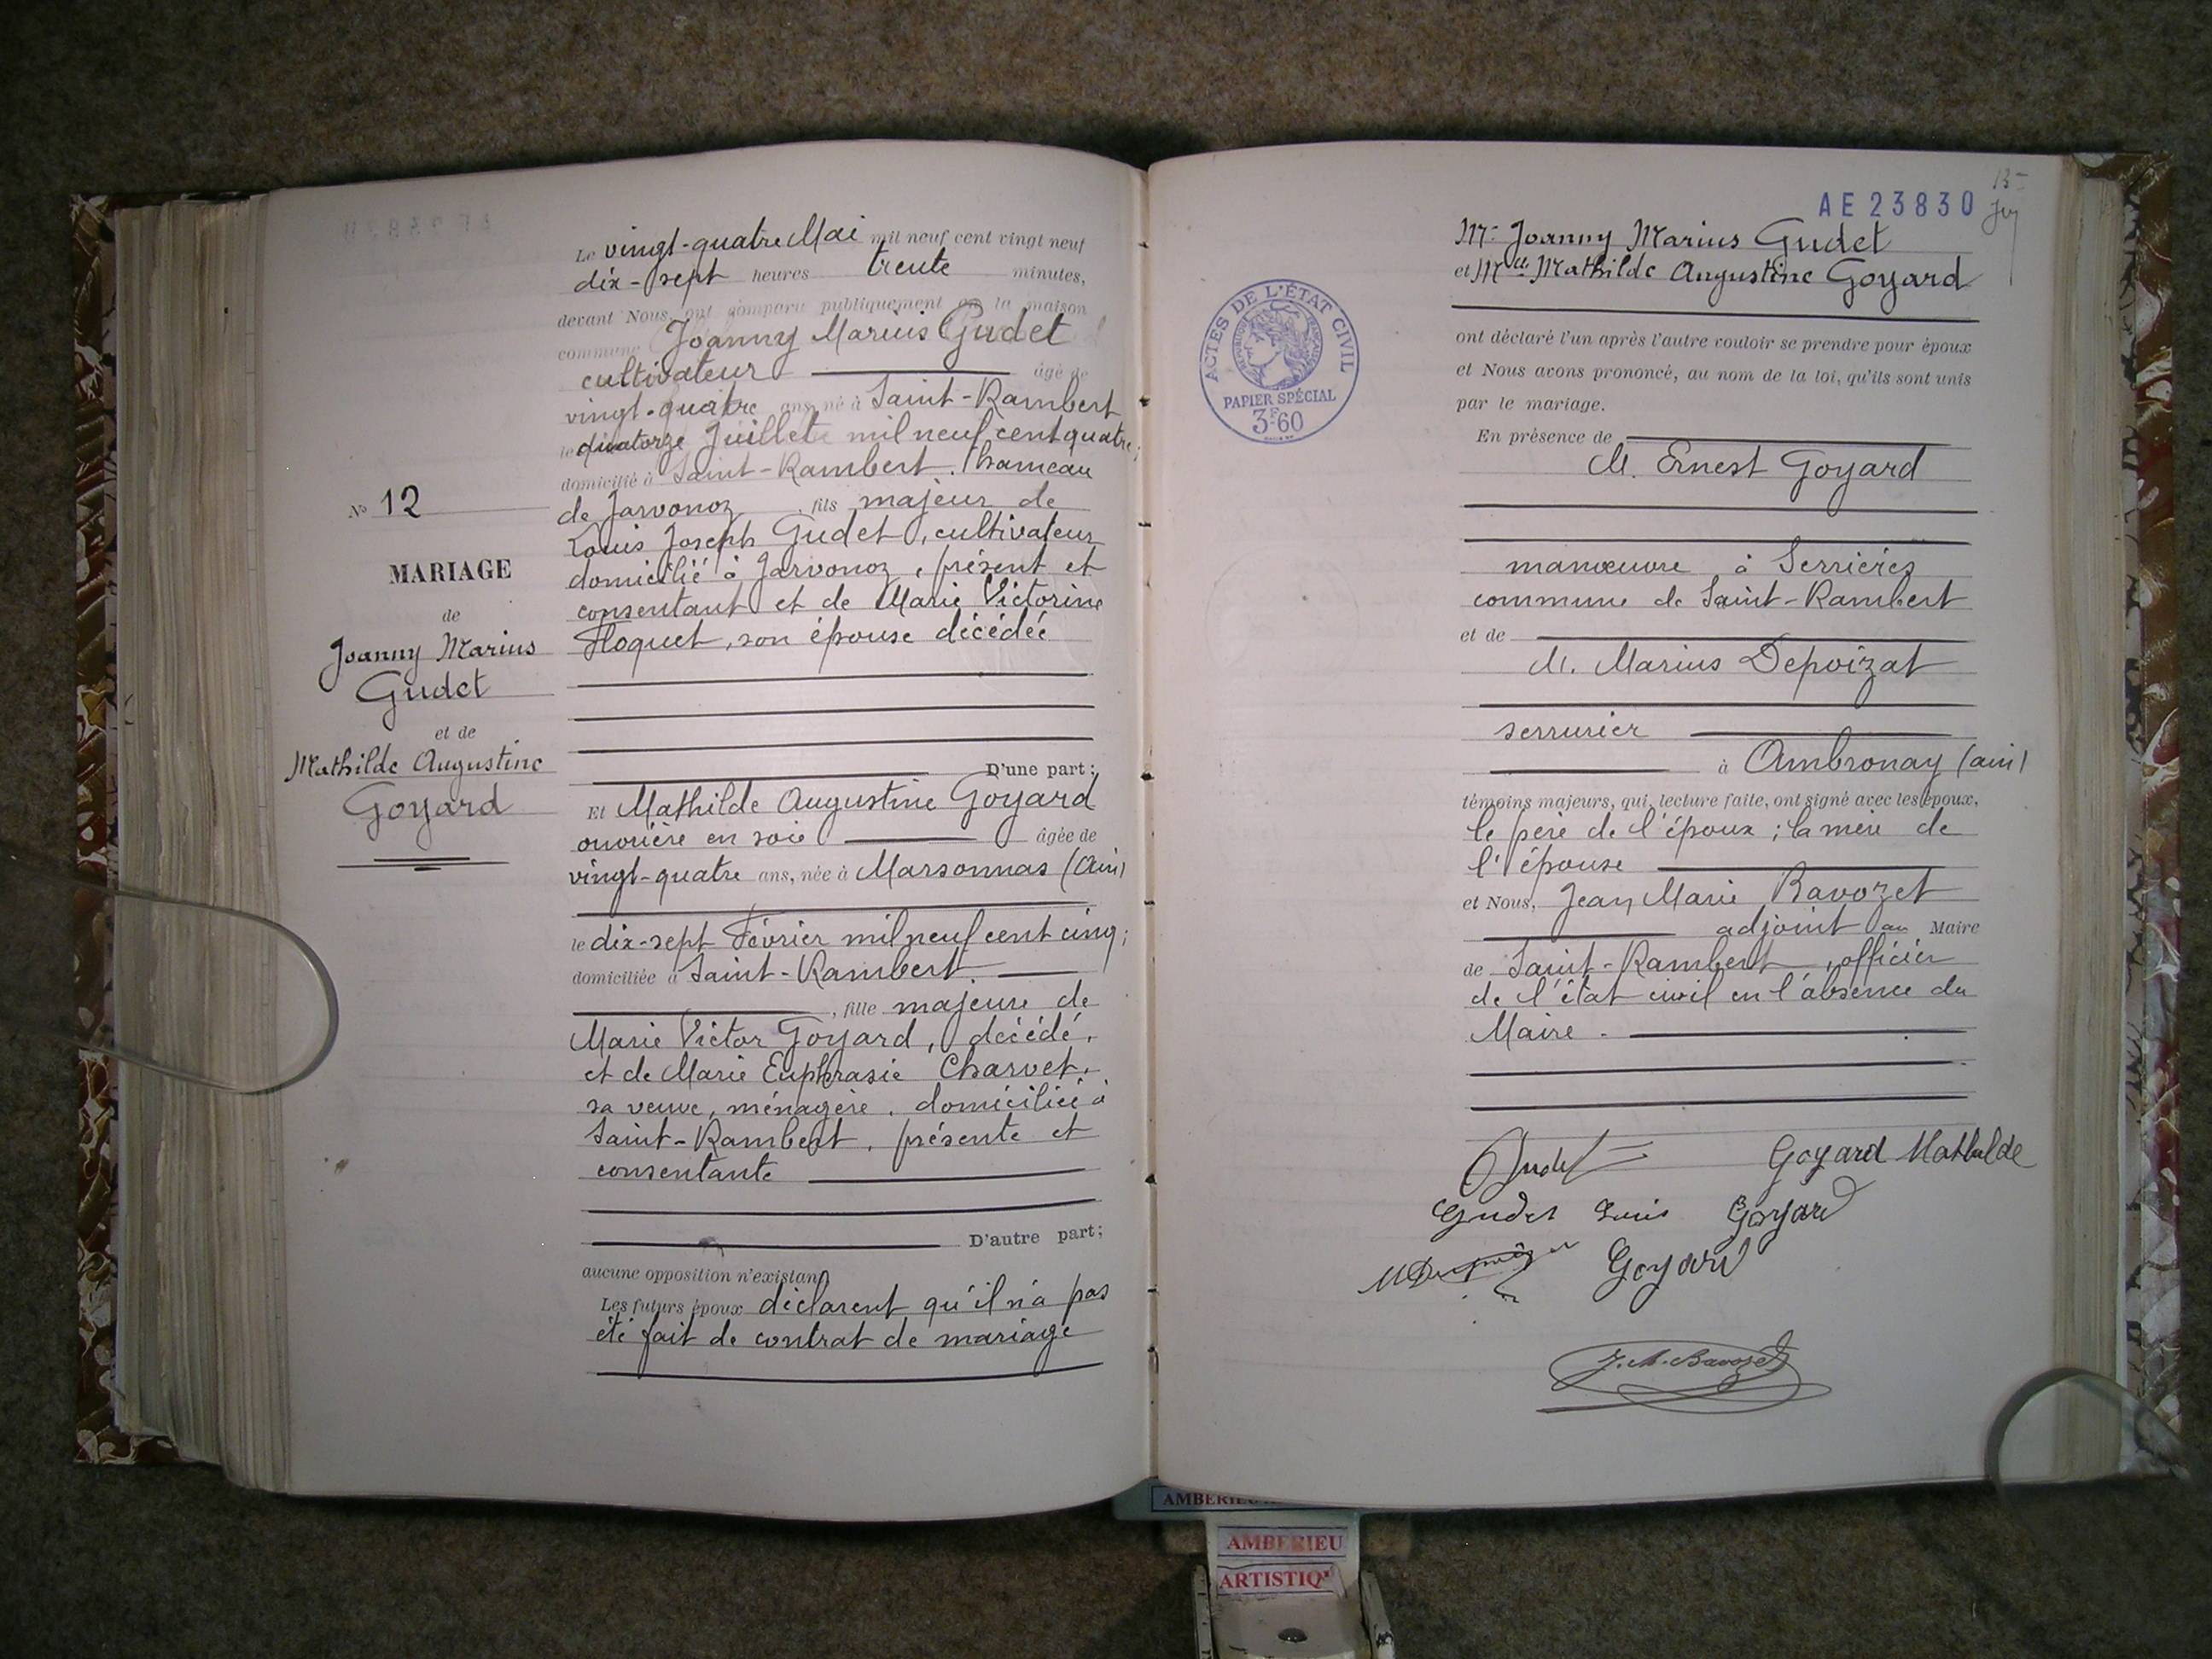 Le vingt-quatre Mai mil neuf cent vingt neuf
dix-sept heures trente minutes,
devant Nous ont comparu publiquement en la maison
commune Joanny Marius Gudet
cultivateur âgé de
vingt-quatre ans, né à Saint-Rambert
le quatorze Juillet mil neuf cent quatre;
domicilié à Saint-Rambert, hameau
de Javornoz, fils majeur de
Louis Joseph Gudet, cultivateur
domicilié à Javornoz, présent et
consentant et de Marie Victorine
Floquet, son épouse décédée
D'une part;
No 12
MARIAGE
de
Joanny Marius
Gudet
et de
Mathilde Augustine
Goyard
Et Mathilde Augustine Goyard
ouvrière en soie âgée de
vingt-quatre ans, née à Marsonnas (Ain)
le dix-sept Février mil neuf cent cinq;
domiciliée à Saint-Rambert
, fille majeure de
Marie Victor Goyard, décédé,
et de Marie Euphrasie Charvet,
sa veuve, ménagère, domiciliée à
Saint-Rambert, présente et
consentante
D'autre part;
aucune opposition n'existant
Les futurs époux déclarent qu'il n'a pas
été fait de contrat de mariage
AE 23830
Mr Joanny Marius Gudet
et Mlle Mathilde Augustine Goyard
ACTES DE L'ÉTAT CIVIL
RÉPUBLIQUE FRANÇAISE
PAPIER SPÉCIAL
3F60
ont déclaré l'un après l'autre vouloir se prendre pour époux
et Nous avons prononcé, au nom de la loi, qu'ils sont unis
par le mariage.
En présence de
M. Ernest Goyard
manœuvre à Serrières
commune de Saint-Rambert
et de
M. Marius Depoizat
serrurier
à Ambronay (ain)
témoins majeurs, qui, lecture faite, ont signé avec les époux,
le père de l'époux; la mère de
l'épouse
et Nous, Jean Marie Bavozet
adjoint au Maire
de Saint-Rambert, officier
de l'état civil en l'absence du
Maire.
Gudet Goyard Mathilde
Gudet Louis Goyard
Goyard
J.M. Bavozet
AMBERIEU
AMBERIEU
ARTISTIQ